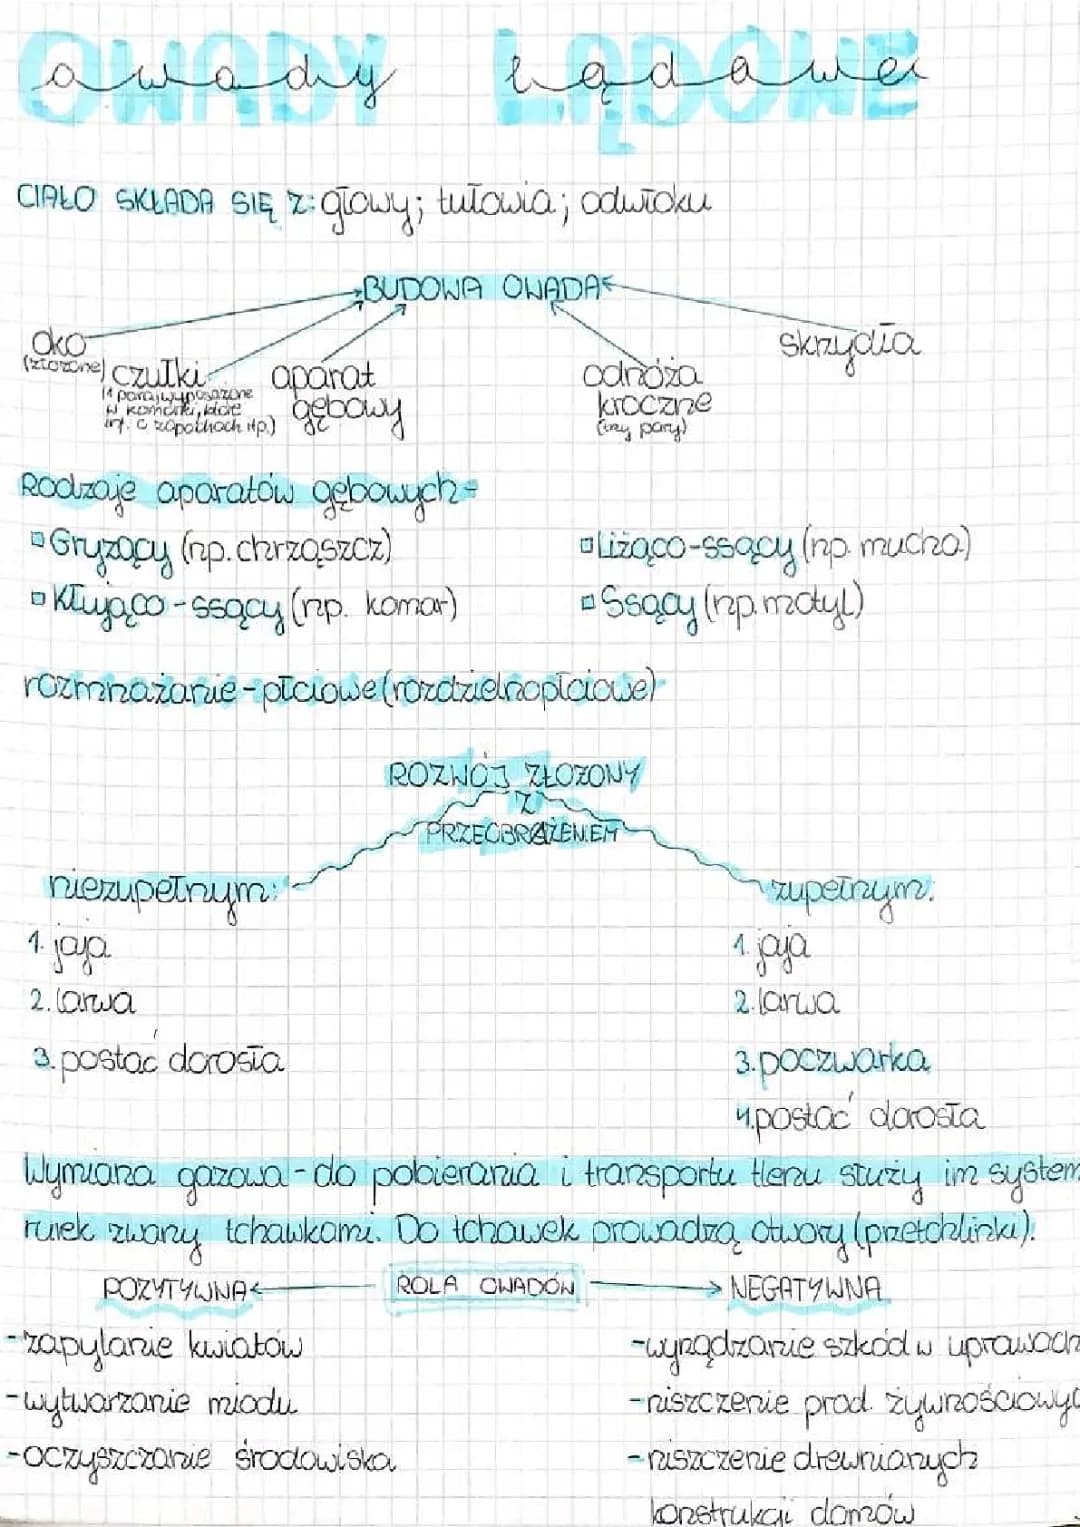 OWADY LĄDOWE
owady lądowe
CIAŁO SKŁADA SIĘ Z: głowy; tułowia; odwłoku
BUDOWA OWADA
oko
(złożone)
czułki
(1 para, wyposażone
w komórki, które
inf. o zapachach itp.)
aparat
gębowy
odnóża
kroczne
(trzy pary)
skrzydła
Rodzaje aparatów gębowych-
Gryzący (np. chrząszcz)
Liżąco-ssący (np. mucha)
Kłująco-ssący (np. komar)
Ssący (np. motyl)
rozmnażanie-płciowe (rozdzielnopłciowe)
ROZWÓJ ZŁOŻONY
Z
PRZEOBRAŻENIEM
niezupełnym:
1. jaja
2. larwa
3. postać dorosła
zupełnym:
1. jaja
2. larwa
3. poczwarka
4. postać dorosła
Wymiana gazowa-do pobierania i transportu tlenu służy im system
rurek zwany tchawkami. Do tchawek prowadzą otwory (przetchlinki).
ROLA OWADÓW
POZYTYWNA
-zapylanie kwiatów
-wytwarzanie miodu
-oczyszczanie środowiska
NEGATYWNA
-wyrządzanie szkód w uprawach
-niszczenie prod. żywnościowyc
-niszczenie drewnianych
konstrukcji domów